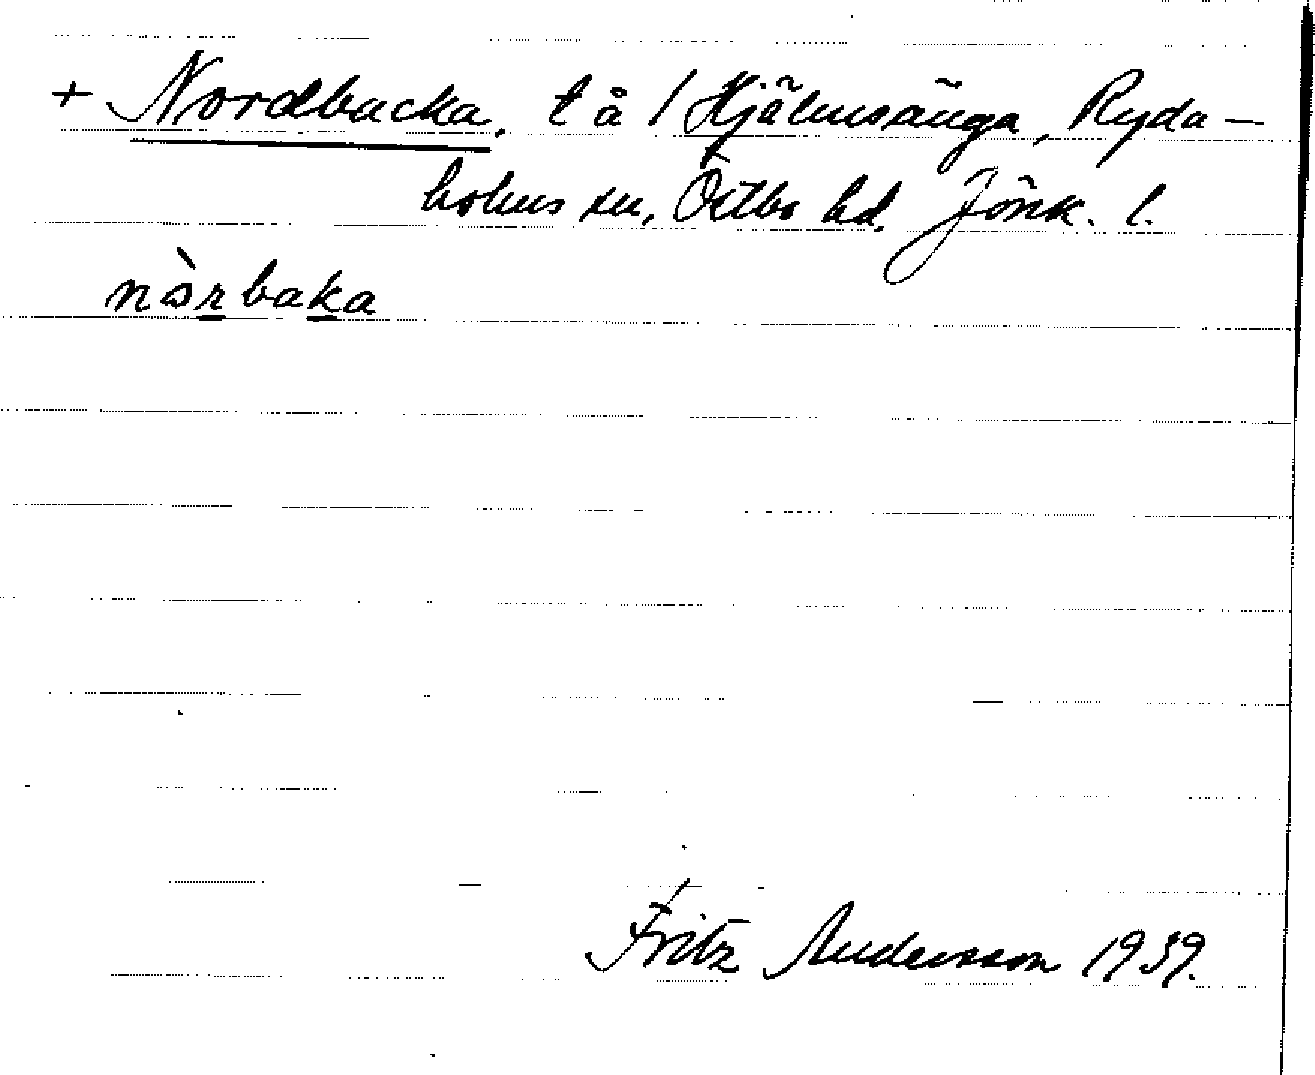 + Nordbacka, t å / Hjälmsänga, Ryda-
holms sn, Östbo hd, Jönk. l.
nòrbaka
Fritz Andersson 1939.